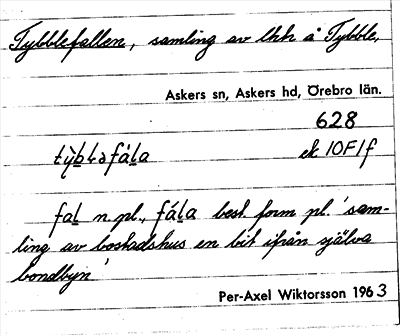 Tybblefallen, samling av lhh å Tybble,
Askers sn, Askers hd, Örebro län.
628
tỳb̲ɫəfál̲a ek 10F1f
fal̲ n. pl., fál̲a best. form pl. 'sam-
ling av bostadshus en bit ifrån själva
bondbyn'
Per-Axel Wiktorsson 1963